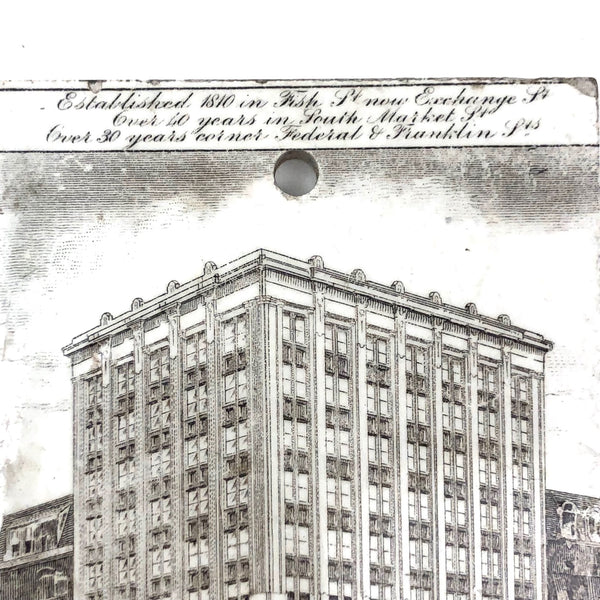 Established 1810 in Fish St now Exchange St
Over 40 years in South Market St
Over 30 years corner Federal & Franklin Sts